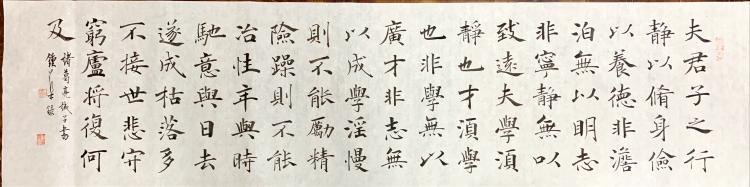 夫君子之行
靜以脩身儉
以養德非澹
泊無以明志
非寧靜無以
致遠夫學須
靜也才須學
也非學無以
廣才非志無
以成學淫慢
則不能勵精
險躁則不能
治性年與時
馳意與日去
遂成枯落多
不接世悲守
窮廬將復何
及
諸葛亮誡子書